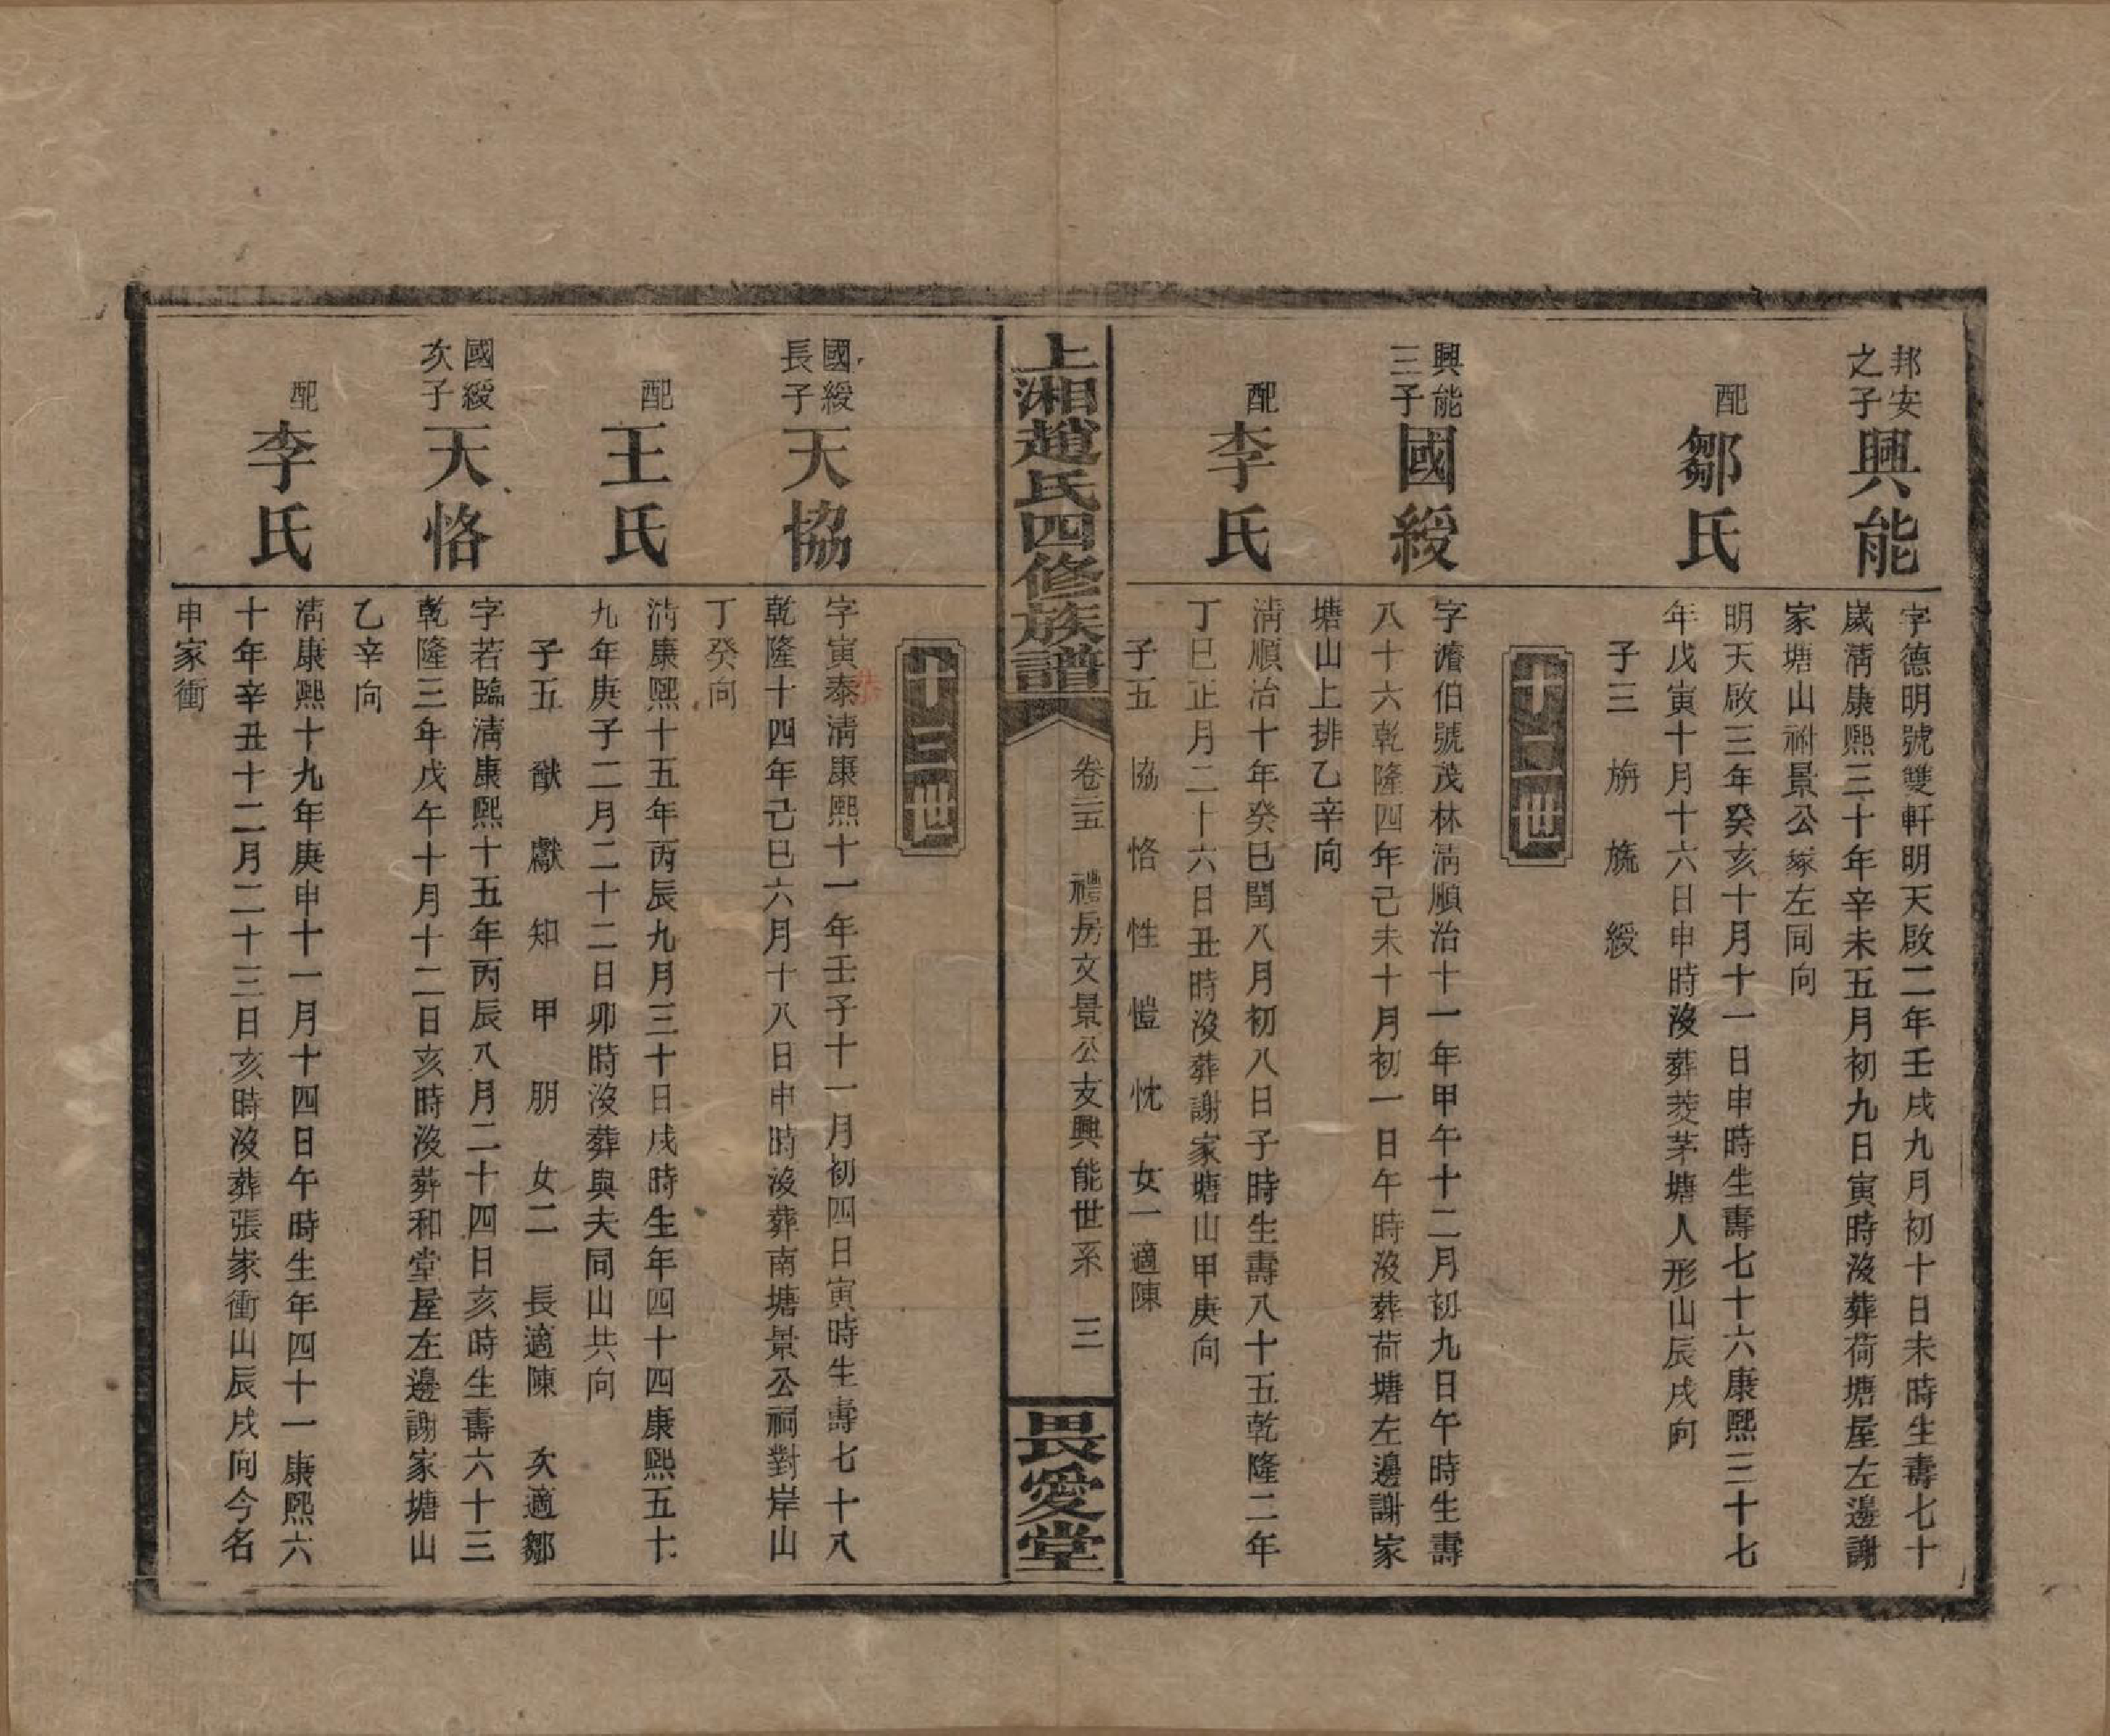 邦安
之子
興能
字德明號雙軒明天啟二年壬戌九月初十日未時生壽七十
歲淸康熙三十年辛未五月初九日寅時沒葬荷塘屋左邊謝
家塘山祔景公冢左同向
配
鄒氏
明天啟三年癸亥十月十一日申時生壽七十六康熙三十七
年戊寅十月十六日申時沒葬茭茅塘人形山辰戌向
子三 旃 旒 綬
十二世
興能
三子
國綬
字澹伯號茂林淸順治十一年甲午十二月初九日午時生壽
八十六乾隆四年己未十月初一日午時沒葬荷塘左邊謝家
塘山上排乙辛向
配
李氏
淸順治十年癸巳閏八月初八日子時生壽八十五乾隆二年
丁巳正月二十六日丑時沒葬謝家塘山甲庚向
子五 協 恪 性 愷 忱 女一適陳
上湘趙氏四修族譜
卷三五 禮房文景公支興能世系 三
畏愛堂
十三世
國綬
長子
天協
字寅泰淸康熙十一年壬子十一月初四日寅時生壽七十八
乾隆十四年己巳六月十八日申時沒葬南塘景公祠對岸山
丁癸向
配
王氏
淸康熙十五年丙辰九月三十日戌時生年四十四康熙五十
九年庚子二月二十二日卯時沒葬與夫同山共向
子五 猷 獻 知 甲 朋 女二 長適陳 次適鄒
國綬
次子
天恪
字若臨淸康熙十五年丙辰八月二十四日亥時生壽六十三
乾隆三年戊午十月十二日亥時沒葬和堂屋左邊謝家塘山
乙辛向
配
李氏
淸康熙十九年庚申十一月十四日午時生年四十一康熙六
十年辛丑十二月二十三日亥時沒葬張家衝山辰戌向今名
申家衝